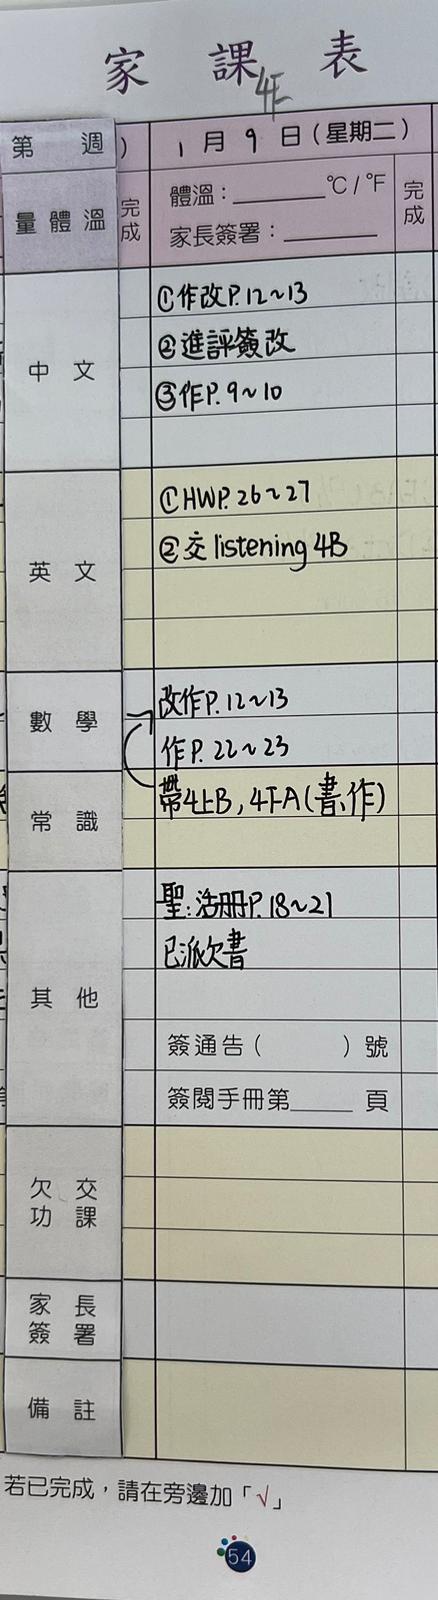 家課表
4E
第 週
)
1月9日(星期二)
量體溫
完成
體溫:______°C/°F
家長簽署:______
完成
中文
①作改P.12~13
②進評簽改
③作P.9~10
英文
①HWP.26~27
②交listening 4B
數學
改作P.12~13
作P.22~23
常識
帶4上B,4下A(書、作)
其他
聖:活冊P.18~21
已派欠書
簽通告( )號
簽閱手冊第______頁
欠交功課
家長簽署
備註
若已完成,請在旁邊加「√」
54